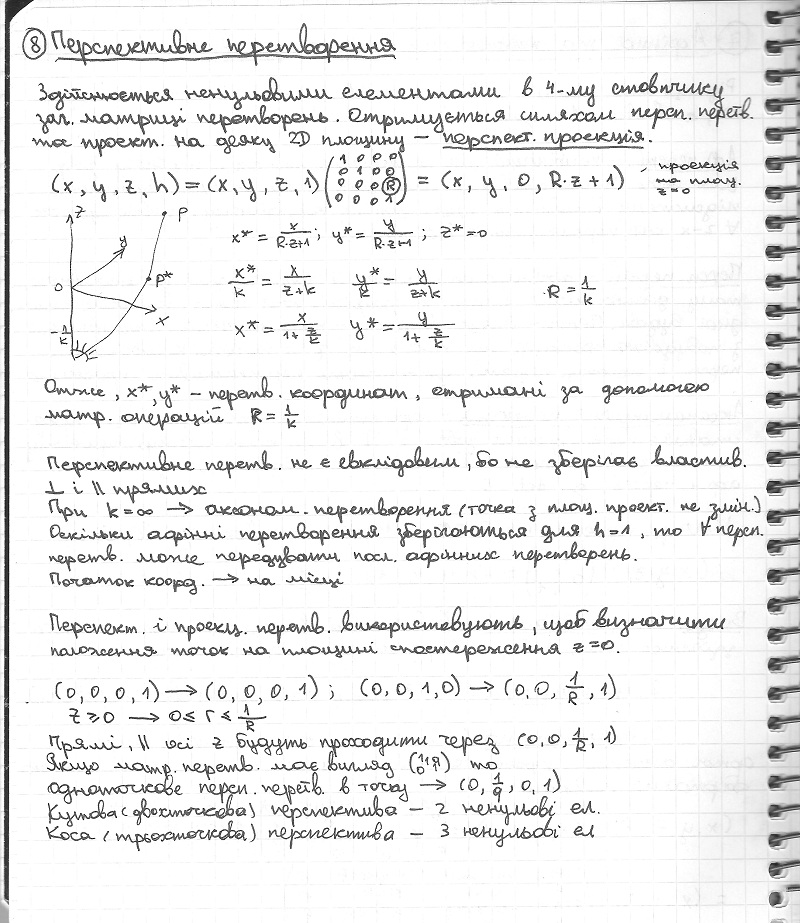 8 Перспективне перетворення
Здійснюється ненульовими елементами в 4-му стовпчику
заг. матриці перетворень. Отримується шляхом персп. перетв.
та проект. на деяку 2D площину – перспект. проекція.
(x, y, z, h) = (x, y, z, 1) (1 0 0 0 / 0 1 0 0 / 0 0 0 R / 0 0 0 1) = (x, y, 0, R·z+1) - проекція на площ. z=0
z P
y x* = x/(R·z+1) ; y* = y/(R·z+1) ; z* = 0
0 P* x*/k = x/(z+k) y*/k = y/(z+k) R = 1/k
x
-1/k x* = x/(1+z/k) y* = y/(1+z/k)
Отже, x*, y* – перетв. координат, отримані за допомогою
матр. операцій R = 1/k
Перспективне перетв. не є евклідовим, бо не зберігає властив.
⊥ і || прямих
При k=∞ → аксоном. перетворення (точка з площ. проект. не змін.)
Оскільки афінні перетворення зберігаються для h=1, то ∀ персп.
перетв. може передувати посл. афінних перетворень.
Початок коорд. → на місці
Перспект. і проекц. перетв. використовують, щоб визначити
положення точок на площині спостереження z=0.
(0, 0, 0, 1) → (0, 0, 0, 1) ; (0, 0, 1, 0) → (0, 0, 1/R, 1)
z ≥ 0 → 0 ≤ r ≤ 1/R
Прямі, || осі z будуть проходити через (0, 0, 1/R, 1)
Якщо матр. перетв. має вигляд то
одноточкове персп. перетв. в точку → (0, 1/q, 0, 1)
Кутова (двохточкова) перспектива – 2 ненульові ел.
Коса (трьохточкова) перспектива – 3 ненульові ел